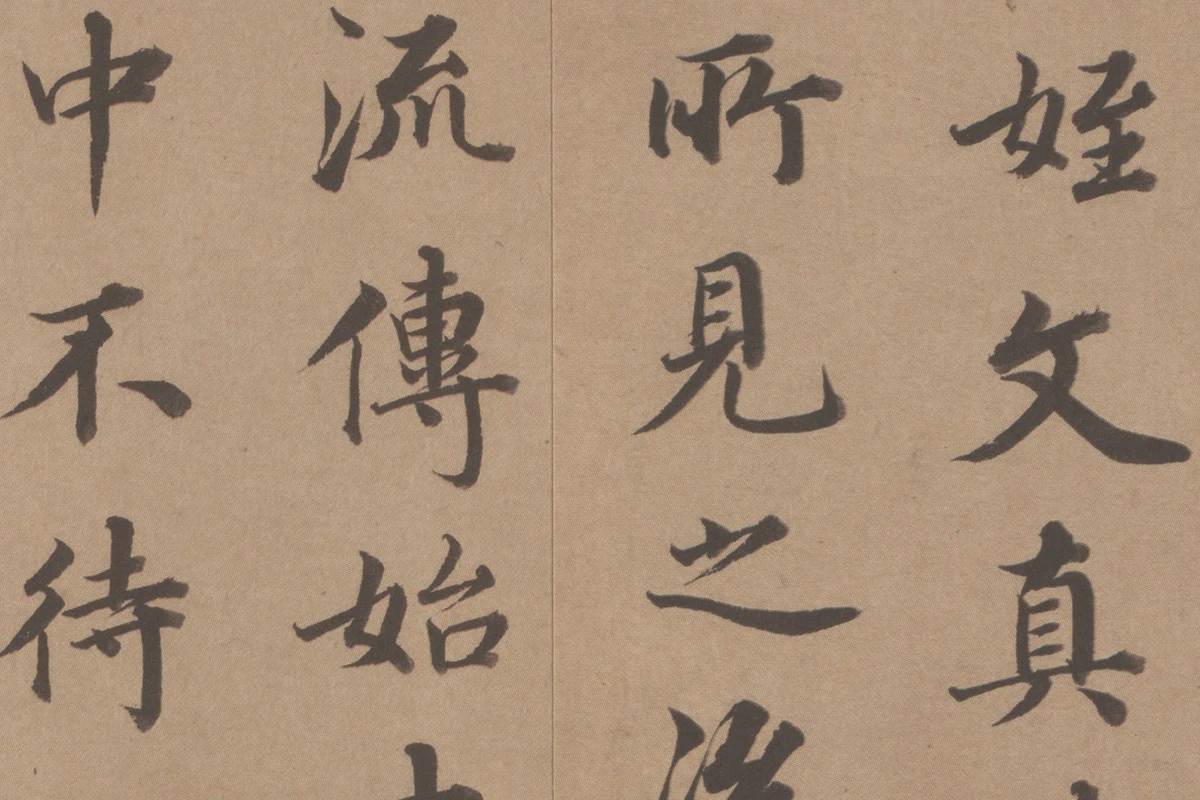 姪文真
所見之
流傳始
中不待